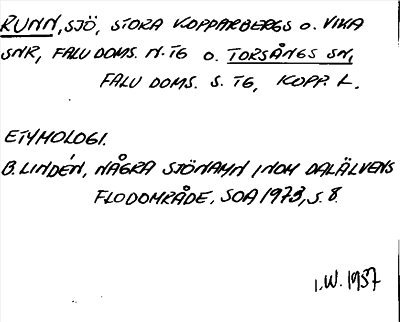 RUNN, SJÖ, STORA KOPPARBERGS O. VIKA
SNR, FALU DOMS. N. TG O. TORSÅNGS SN,
FALU DOMS. S. TG, KOPP. L.
ETYMOLOGI.
B. LINDÉN, NÅGRA SJÖNAMN INOM DALÄLVENS
FLODOMRÅDE, SOA 1973, S. 8.
I.W. 1987